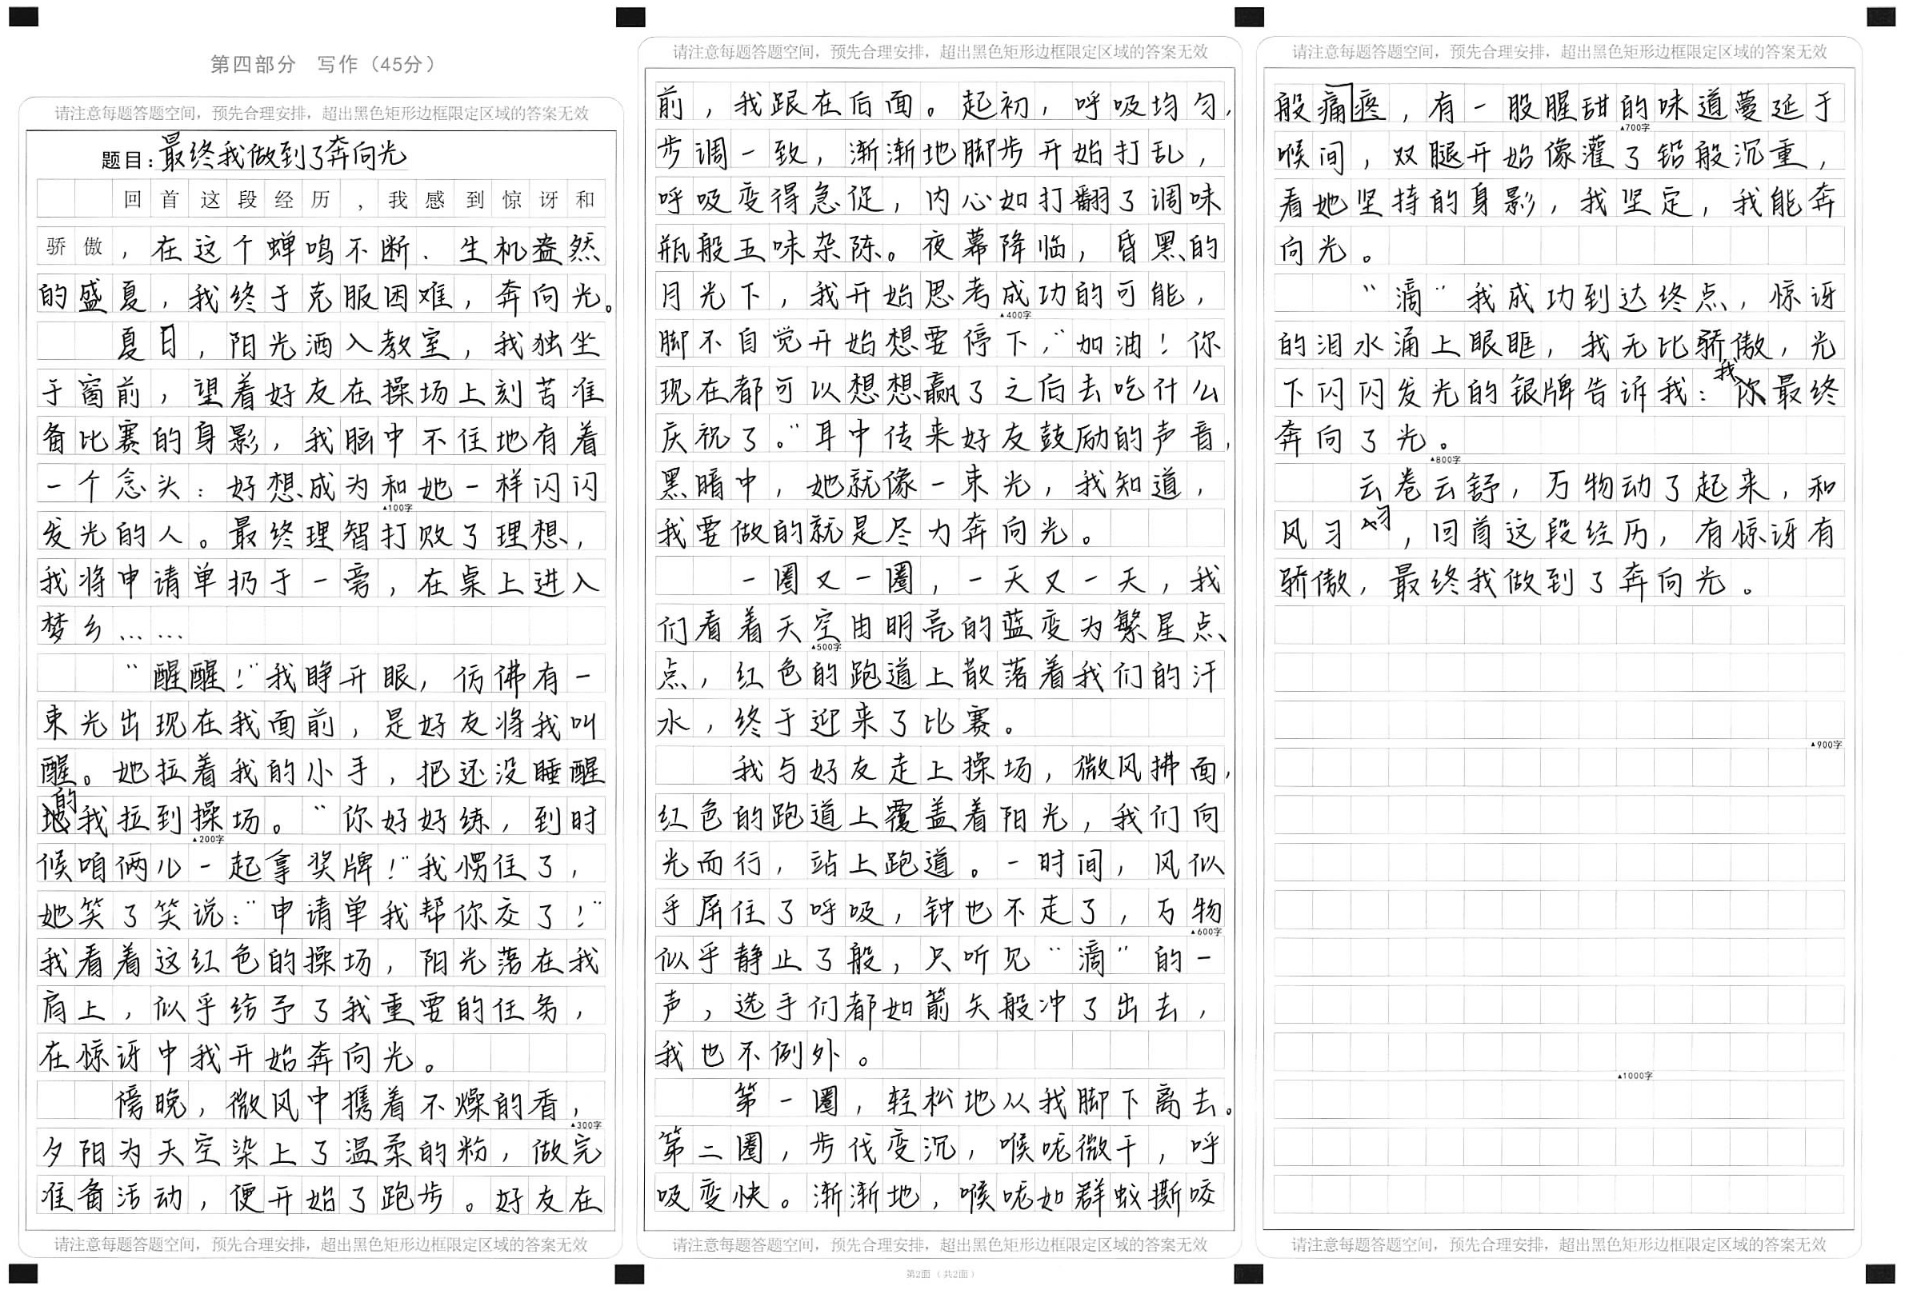 第四部分 写作（45分）
请注意每题答题空间，预先合理安排，超出黑色矩形边框限定区域的答案无效
题目：最终我做到了奔向光
回首这段经历，我感到惊讶和
骄傲，在这个蝉鸣不断、生机盎然
的盛夏，我终于克服困难，奔向光。
夏日，阳光洒入教室，我独坐
于窗前，望着好友在操场上刻苦准
备比赛的身影，我脑中不住地有着
一个念头：好想成为和她一样闪闪
▲100字
发光的人。最终理智打败了理想，
我将申请单扔于一旁，在桌上进入
梦乡……
“醒醒！”我睁开眼，仿佛有一
束光出现在我面前，是好友将我叫
醒。她拉着我的小手，把还没睡醒
的我拉到操场。“你好好练，到时
▲200字
候咱俩儿一起拿奖牌！”我愣住了，
她笑了笑说：“申请单我帮你交了！”
我看着这红色的操场，阳光落在我
肩上，似乎给予了我重要的任务，
在惊讶中我开始奔向光。
傍晚，微风中携着不燥的香，
▲300字
夕阳为天空染上了温柔的粉，做完
准备活动，便开始了跑步。好友在
请注意每题答题空间，预先合理安排，超出黑色矩形边框限定区域的答案无效
请注意每题答题空间，预先合理安排，超出黑色矩形边框限定区域的答案无效
前，我跟在后面。起初，呼吸均匀，
步调一致，渐渐地脚步开始打乱，
呼吸变得急促，内心如打翻了调味
瓶般五味杂陈。夜幕降临，昏黑的
月光下，我开始思考成功的可能，
▲400字
脚不自觉开始想要停下，“加油！你
现在都可以想想赢了之后去吃什么
庆祝了。”耳中传来好友鼓励的声音，
黑暗中，她就像一束光，我知道，
我要做的就是尽力奔向光。
一圈又一圈，一天又一天，我
们看着天空由明亮的蓝变为繁星点
▲500字
点，红色的跑道上散落着我们的汗
水，终于迎来了比赛。
我与好友走上操场，微风拂面，
红色的跑道上覆盖着阳光，我们向
光而行，站上跑道。一时间，风似
乎屏住了呼吸，钟也不走了，万物
▲600字
似乎静止了般，只听见“滴”的一
声，选手们都如箭矢般冲了出去，
我也不例外。
第一圈，轻松地从我脚下离去。
第二圈，步伐变沉，喉咙微干，呼
吸变快。渐渐地，喉咙如群蚁撕咬
请注意每题答题空间，预先合理安排，超出黑色矩形边框限定区域的答案无效
第2面（共2面）
请注意每题答题空间，预先合理安排，超出黑色矩形边框限定区域的答案无效
般痛痉，有一股腥甜的味道蔓延于
▲700字
喉间，双腿开始像灌了铅般沉重，
看她坚持的身影，我坚定，我能奔
向光。
“滴”我成功到达终点，惊讶
的泪水涌上眼眶，我无比骄傲，光
下闪闪发光的银牌告诉我：我最终
奔向了光。
▲800字
云卷云舒，万物动了起来，和
风习习，回首这段经历，有惊讶有
骄傲，最终我做到了奔向光。
▲900字
▲1000字
请注意每题答题空间，预先合理安排，超出黑色矩形边框限定区域的答案无效